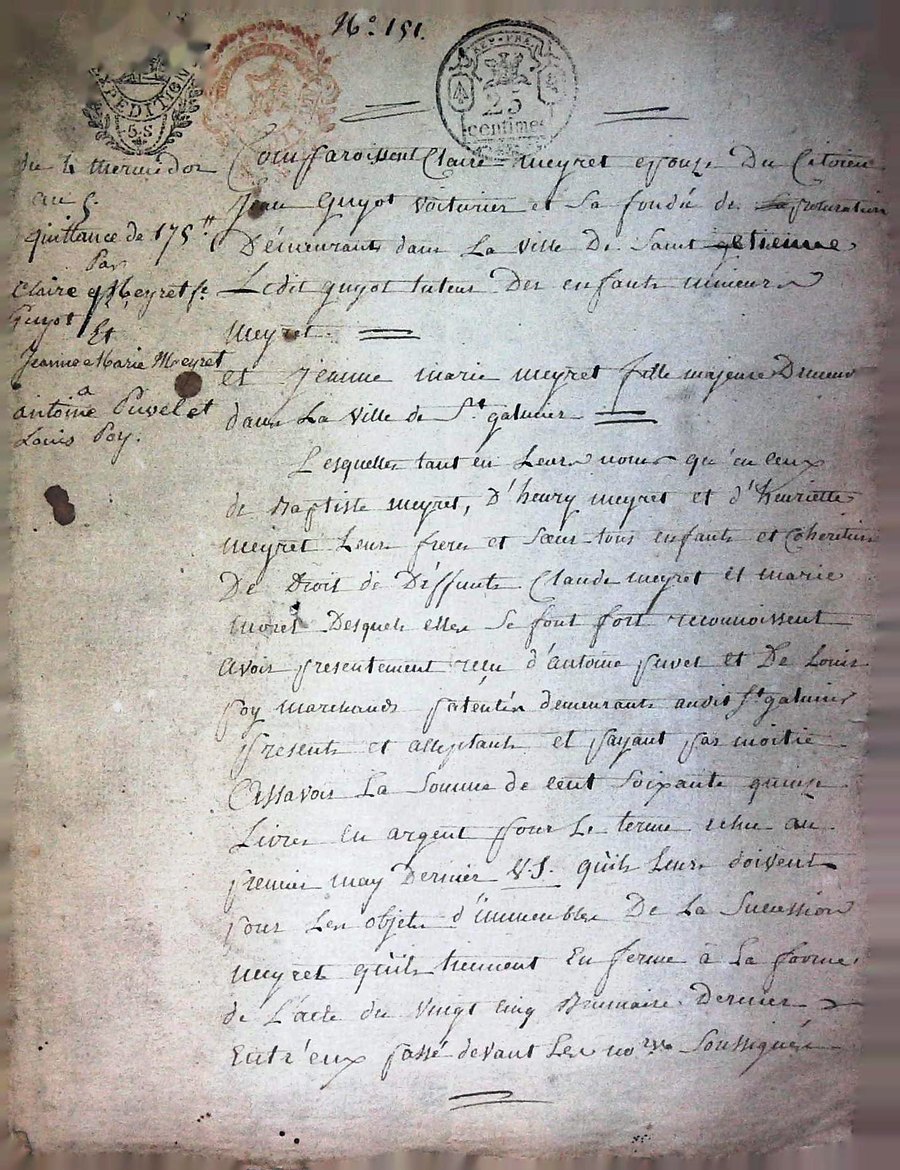 No. 151.
EXPEDITION
5.S
REP. FRA.
25
centimes
du 4 thermidor
an 5.
quittance de 175 ll
Par
Claire Meyret fe.
Guyot
Et
Jeanne Marie Meyret
a
antoine Puvel et
Louis Poy.
Comparoissent Claire meyret epouze du Citoien
Jean Guyot voiturier et sa fondée de procuration
Demeurants dans La ville De Saint etienne
Ledit guyot tuteur Des enfants mineurs
meyret.
et jeanne marie meyret fille majeure Demeur
dans La ville de St galmier
Lesquelles tant en Leurs noms qu'en ceux
de Baptiste meyret, D'henry meyret et d'henriette
meyret Leurs freres et sœur tous enfants et Coheritiers
De Droit de Deffunts Claude meyret et marie
moret Desquels elles se font fort reconnoissent
avoir presentement reçu d'antoine puvel et De Louis
poy marchands patentés demeurants audit St galmier
presents et acceptants et payant par moitié
Assavoir La Somme de cent soixante quinze
Livres en argent pour Le terme echu au
premier may Dernier V.S. qu'ils Leurs doivent
pour Les objets d'immeubles De La Succession
meyret qu'ils tiennent En ferme à La forme
de L'acte du vingt cinq Brumaire Dernier
Entr'eux passé devant Les nores Soussignés